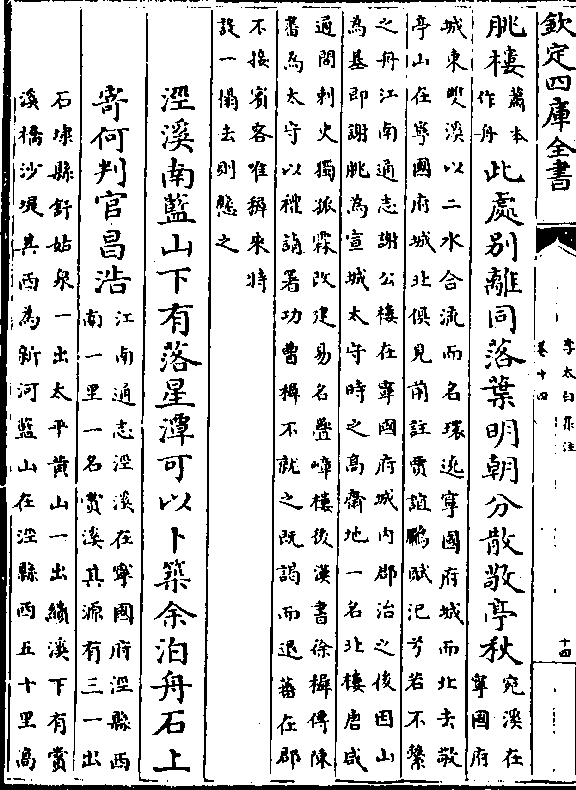 欽定四庫全書
李太白集注
卷十四
十四
朓樓蕭本作舟此處別離同落葉明朝分散敬亭秋宛溪在寧國府
城東雙溪以二水合流而名環遶寧國府城而北去敬
亭山在寧國府城北俱見前註賈誼鵩賦汜兮若不繫
之舟江南通志謝公樓在寧國府城内郡治之後因山
為基即謝朓為宣城太守時之高齋地一名北樓唐咸
通間刺史獨孤霖改建易名疊嶂樓後漢書徐穉傳陳
蕃為太守以禮請署功曹穉不就之既謁而退蕃在郡
不接賓客唯穉來特
設一榻去則懸之
涇溪南藍山下有落星潭可以卜築余泊舟石上
寄何判官昌浩江南通志涇溪在寧國府涇縣西
南一里一名賞溪其源有三一出
石埭縣舒姑泉一出太平黄山一出績溪下有賞
溪橋沙堤其西為新河藍山在涇縣西五十里高